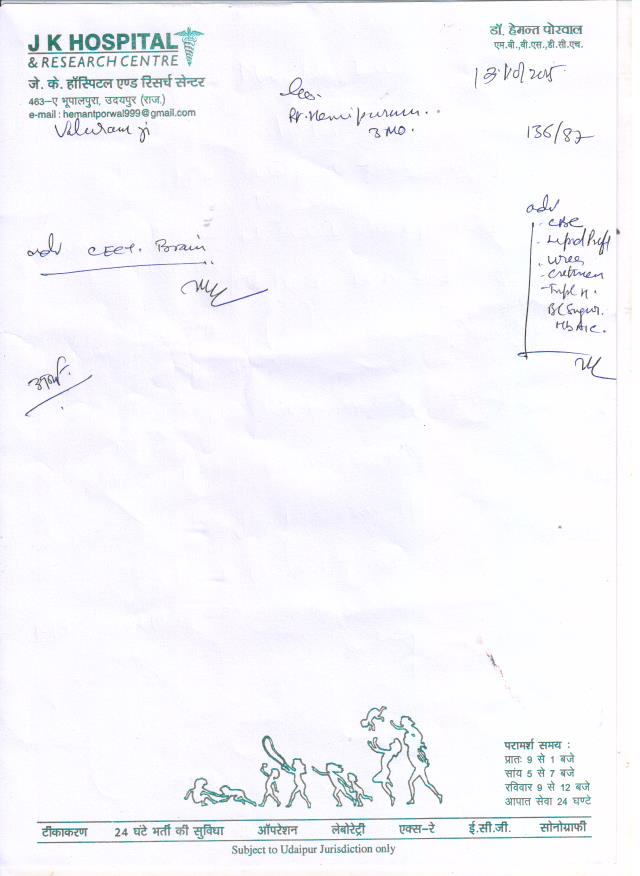 J K HOSPITAL
& RESEARCH CENTRE
जे. के. हॉस्पिटल एण्ड रिसर्च सेन्टर
463-ए भूपालपुरा, उदयपुर (राज.)
e-mail : hemantporwal999@gmail.com
डॉ. हेमन्त पोरवाल
एम.बी.,बी.एस.,डी.सी.एच.
Valuram ji
3 MO.
136/82
adv CECT. Brain
adv
CBC
Lipid Prof
Urea
HbA1c.
परामर्श समय :
प्रातः 9 से 1 बजे
सांय 5 से 7 बजे
रविवार 9 से 12 बजे
आपात सेवा 24 घण्टे
टीकाकरण 24 घंटे भर्ती की सुविधा ऑपरेशन लेबोरेट्री एक्स-रे ई.सी.जी. सोनोग्राफी
Subject to Udaipur Jurisdiction only